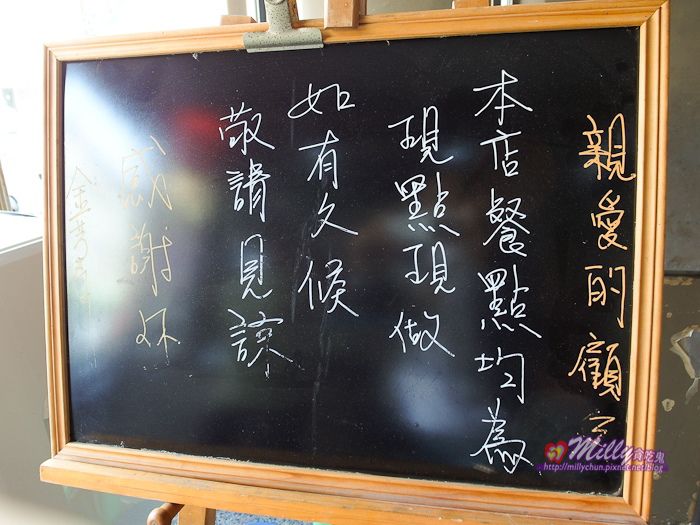 親愛的顧
本店餐點均為
現點現做
如有久候
敬請見諒
感謝您
Milly貪吃鬼
http://millychun.pixnet.net/blog